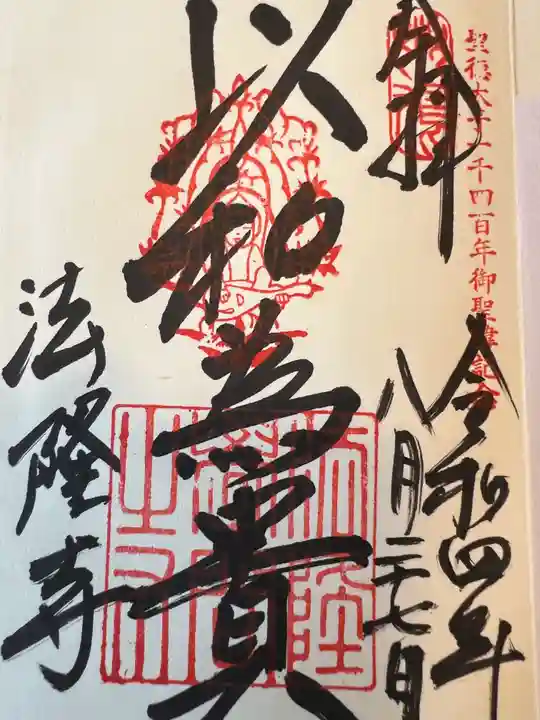 聖徳太子一千四百年御聖諱記念
奉拝
令和四年
八月二十七日
以和為貴
法隆寺